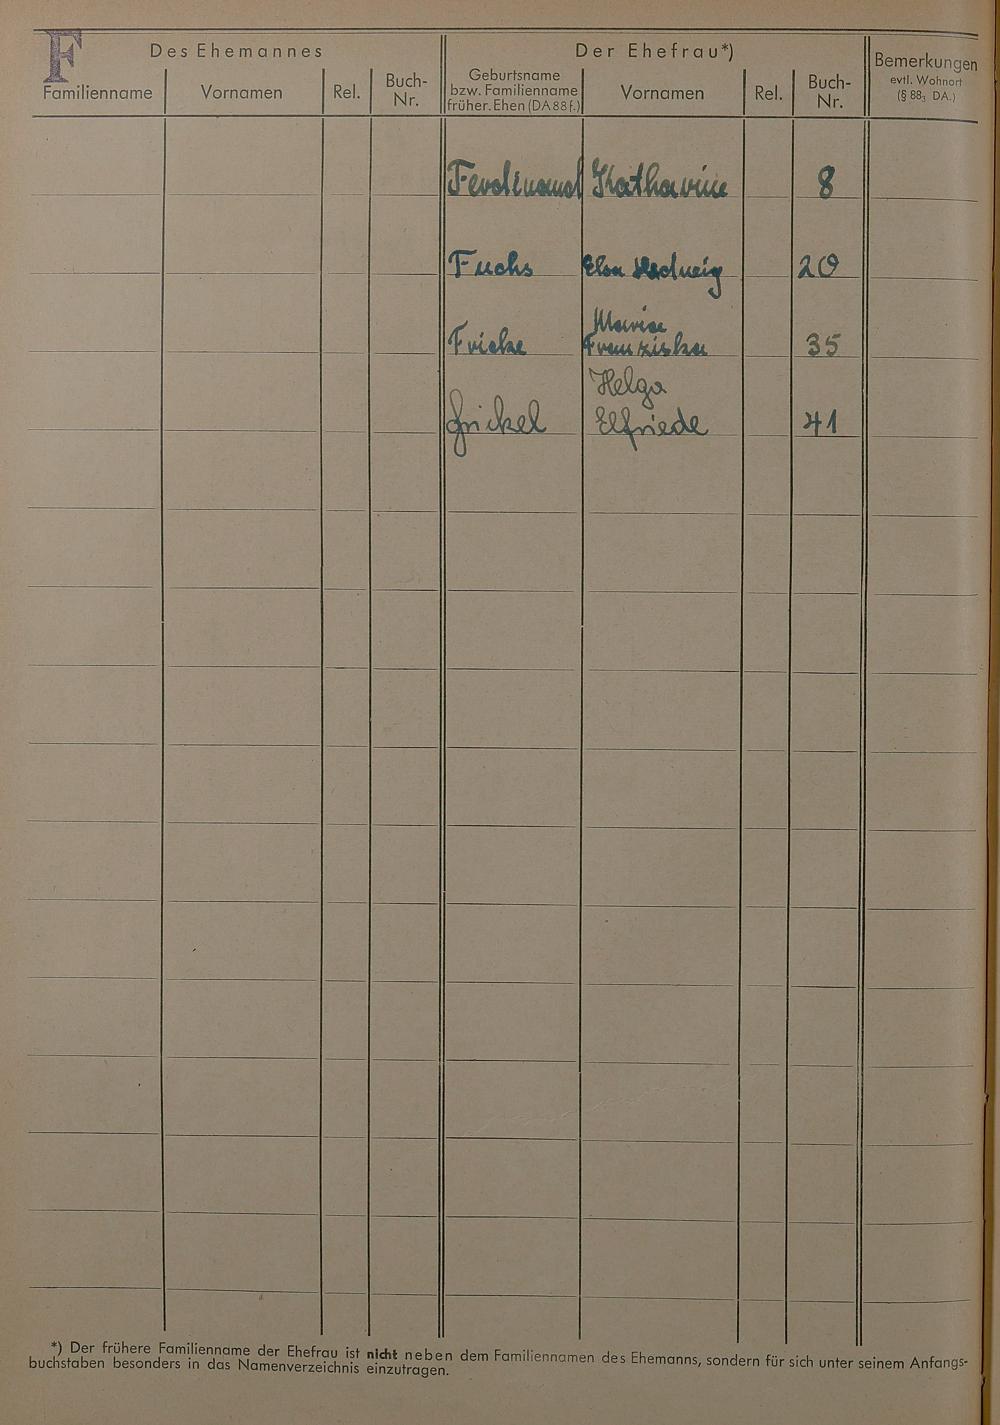 F
Des Ehemannes
Der Ehefrau*)
Bemerkungen
evtl. Wohnort
(§ 88₃ DA.)
Familienname
Vornamen
Rel.
Buch-
Nr.
Geburtsname
bzw. Familienname
früher. Ehen (DA 88 f.)
Vornamen
Rel.
Buch-
Nr.
Ferdinand Katharine 8
Fuchs Elsa Hedwig 20
Marie
Fricke Franziska 35
Helga
Frickel Elfriede 41
*) Der frühere Familienname der Ehefrau ist nicht neben dem Familiennamen des Ehemanns, sondern für sich unter seinem Anfangs-
buchstaben besonders in das Namenverzeichnis einzutragen.